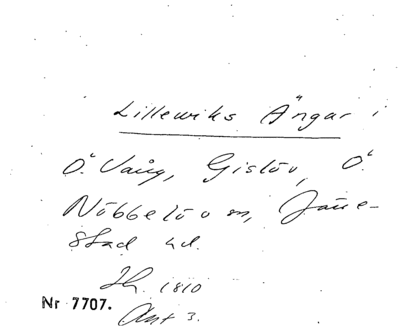 Lillewiks Ängar i
Ö. Vång, Gislöv, Ö.
Nöbbelöv m, Järe-
stad hd.
1810
Nr 7707. Akt 3.